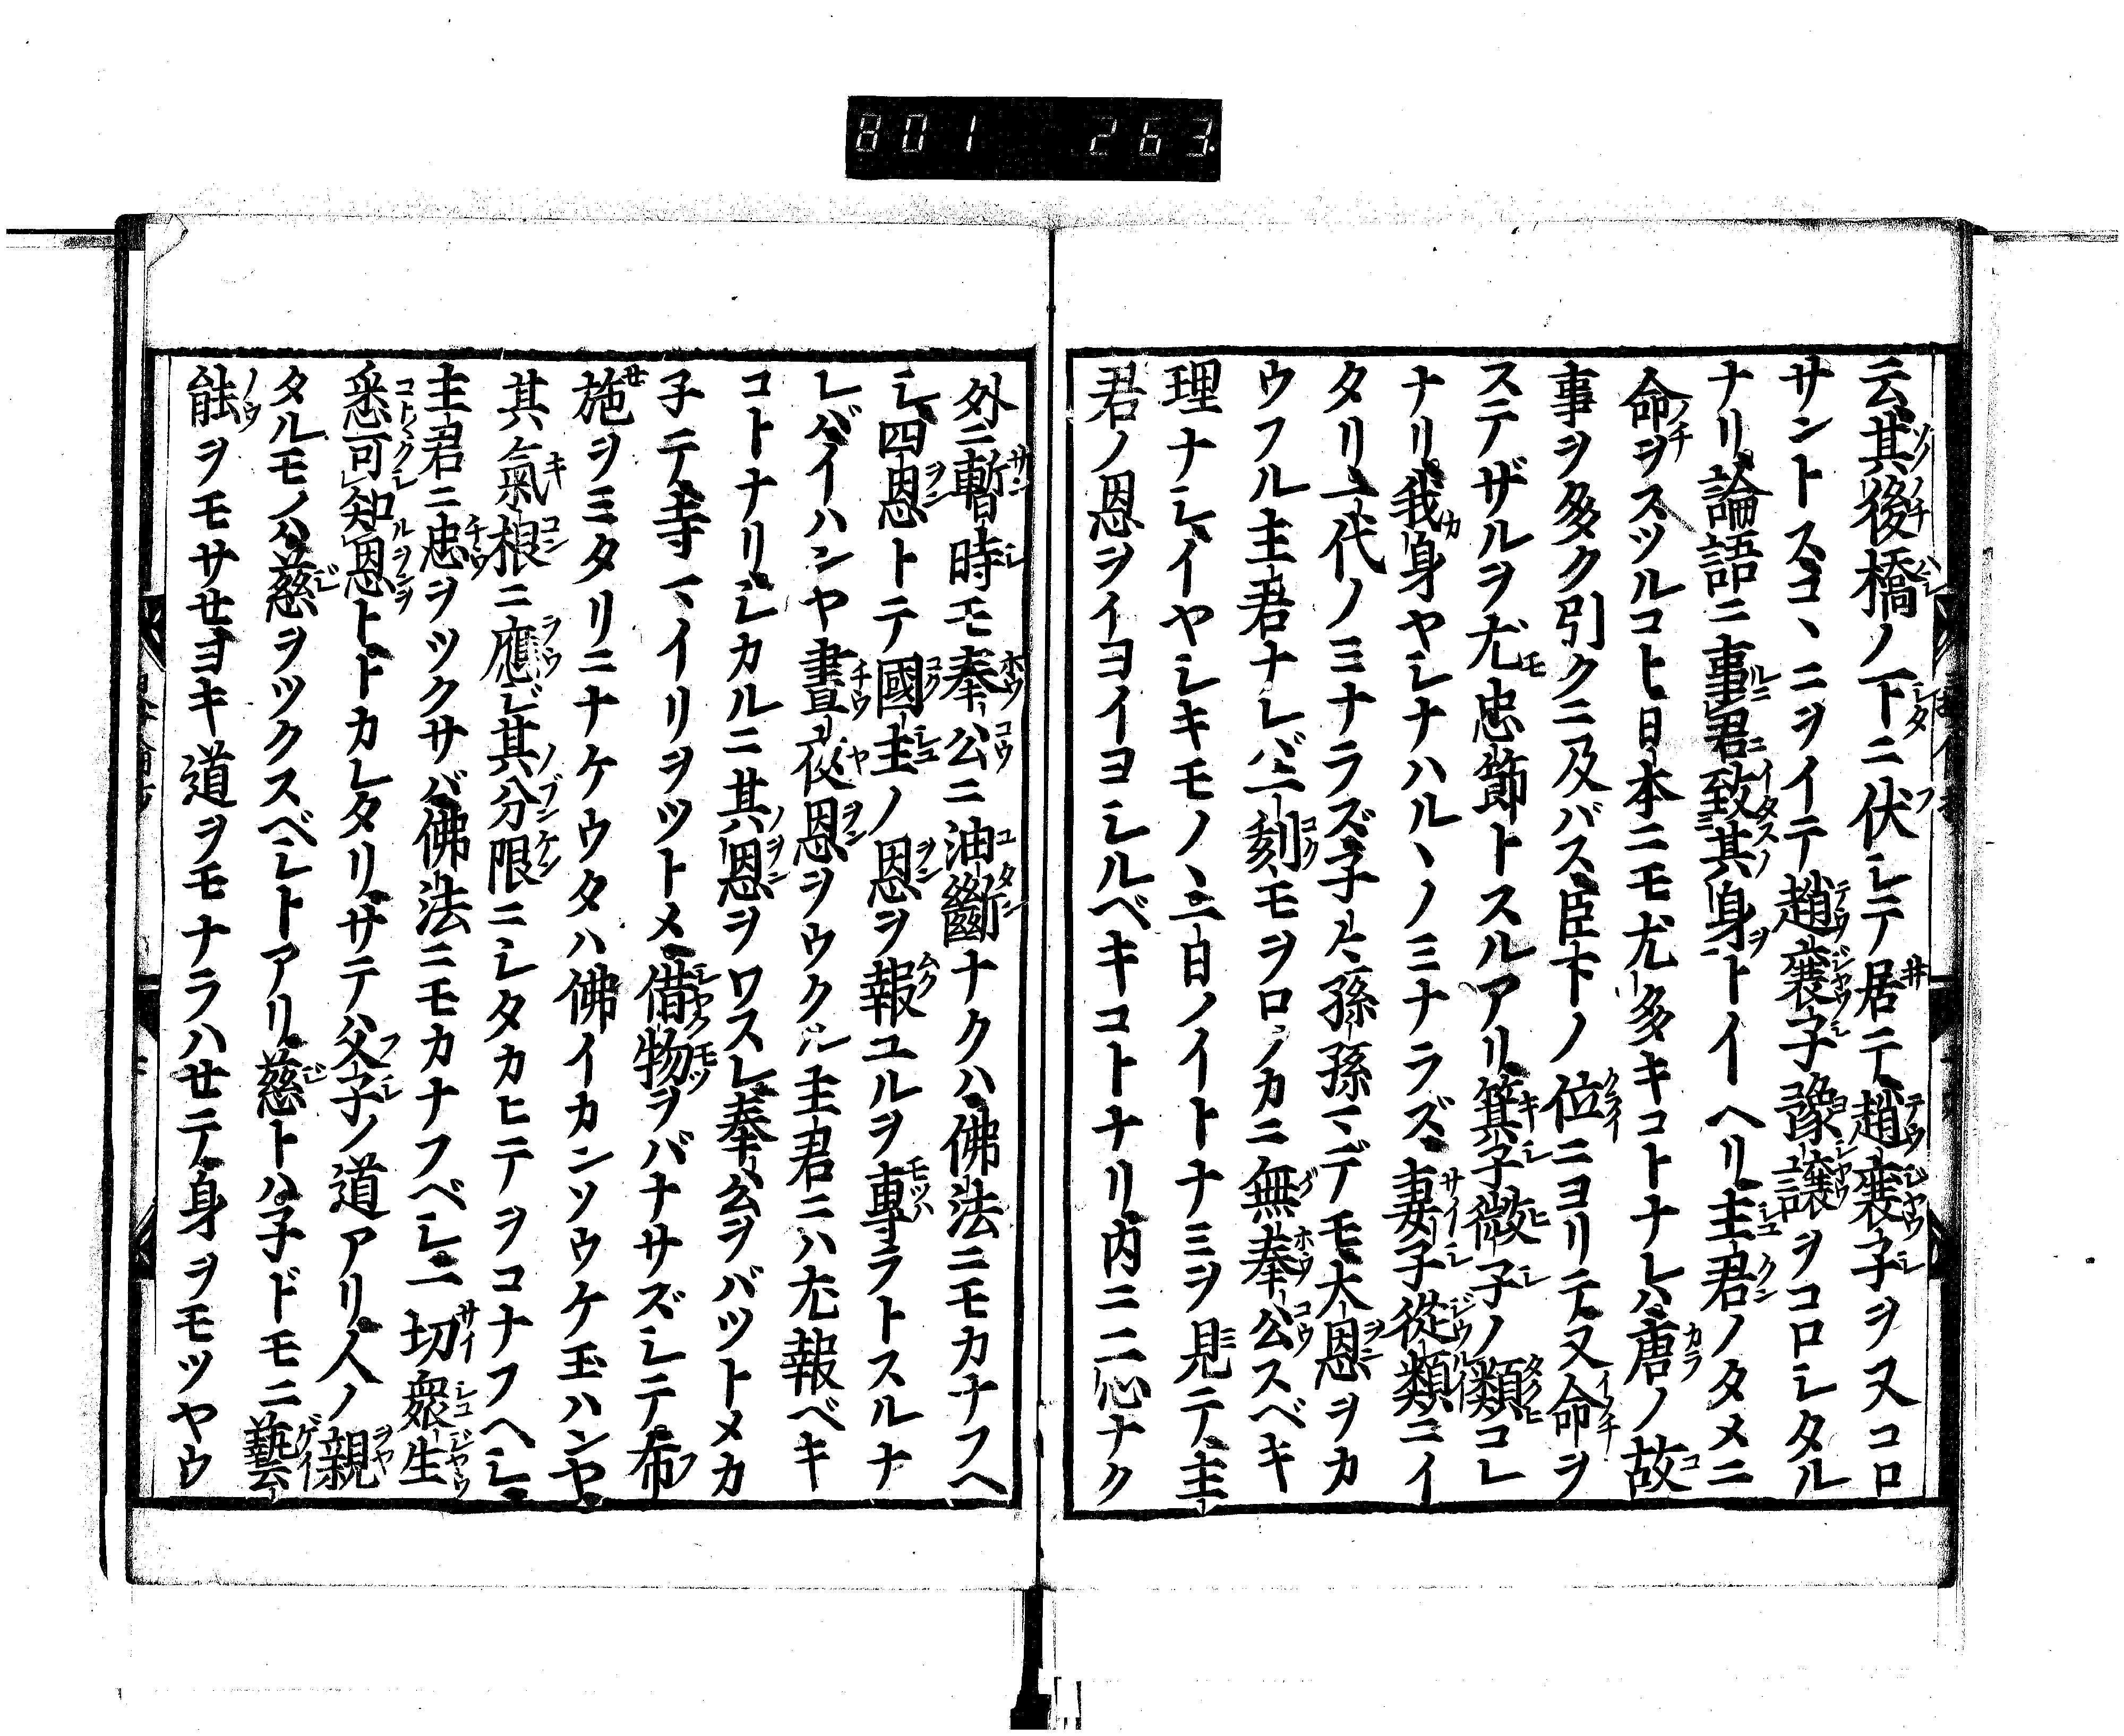 801 263
云其後橋ノ下ニ伏シテ居テ趙襄子ヲ又コロ
サントスコヽニヲイテ趙襄子豫讓ヲコロシタル
ナリ論語ニ事君致其身トイヘリ主君ノタメニ
命ヲスツルコト日本ニモ尤多キコトナレバ唐ノ故
事ヲ多ク引クニ及バス臣下ノ位ニヨリテ又命ヲ
ステザルヲ尤忠節トスルアリ箕子微子ノ類コレ
ナリ我身ヤシナハルヽノミナラズ妻子從類ニイ
タリ一代ノミナラズ子々孫孫マデモ大恩ヲカ
ウフル主君ナレバ一刻モヲロソカニ無奉公スベキ
理ナシイヤシキモノヽ一日ノイトナミヲ見テ主
君ノ恩ヲイヨイヨシルベキコトナリ内ニ二心ナク
外ニ暫時モ奉公ニ油斷ナクハ佛法ニモカナフヘ
シ四恩トテ國主ノ恩ヲ報ユルヲ專ラトスルナ
レバイハンヤ晝夜恩ヲウクル主君ニハ尤報ベキ
コトナリシカルニ其恩ヲワスレ奉公ヲバツトメカ
子テ寺マイリヲツトメ借物ヲバナサズシテ布
施ヲミタリニナケウタハ佛イカンソウケ玉ハンヤ
其氣根ニ應ジ其分限ニシタカヒテヲコナフヘシ
主君ニ忠ヲツクサバ佛法ニモカナフベシ一切衆生
悉可知恩トトカレタリサテ父子ノ道アリ人ノ親
タルモノハ慈ヲツクスベシトアリ慈トハ子ドモニ藝
能ヲモサセヨキ道ヲモナラハセテ身ヲモツヤウ